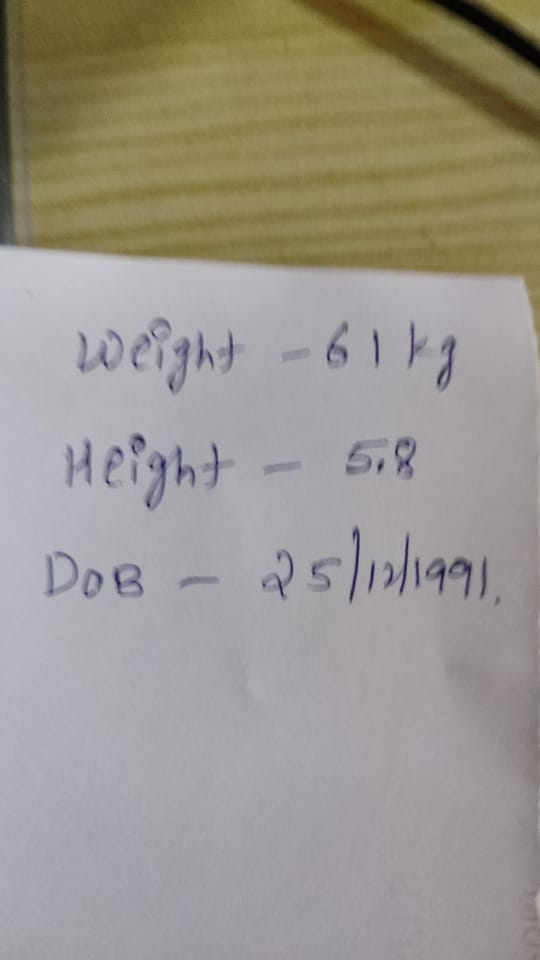 Weight - 61 kg
Height - 5.8
DOB - 25/12/1991.